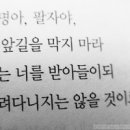 명아, 팔자야,
앞길을 막지 마라
는 너를 받아들이되
려다니지는 않을 것이